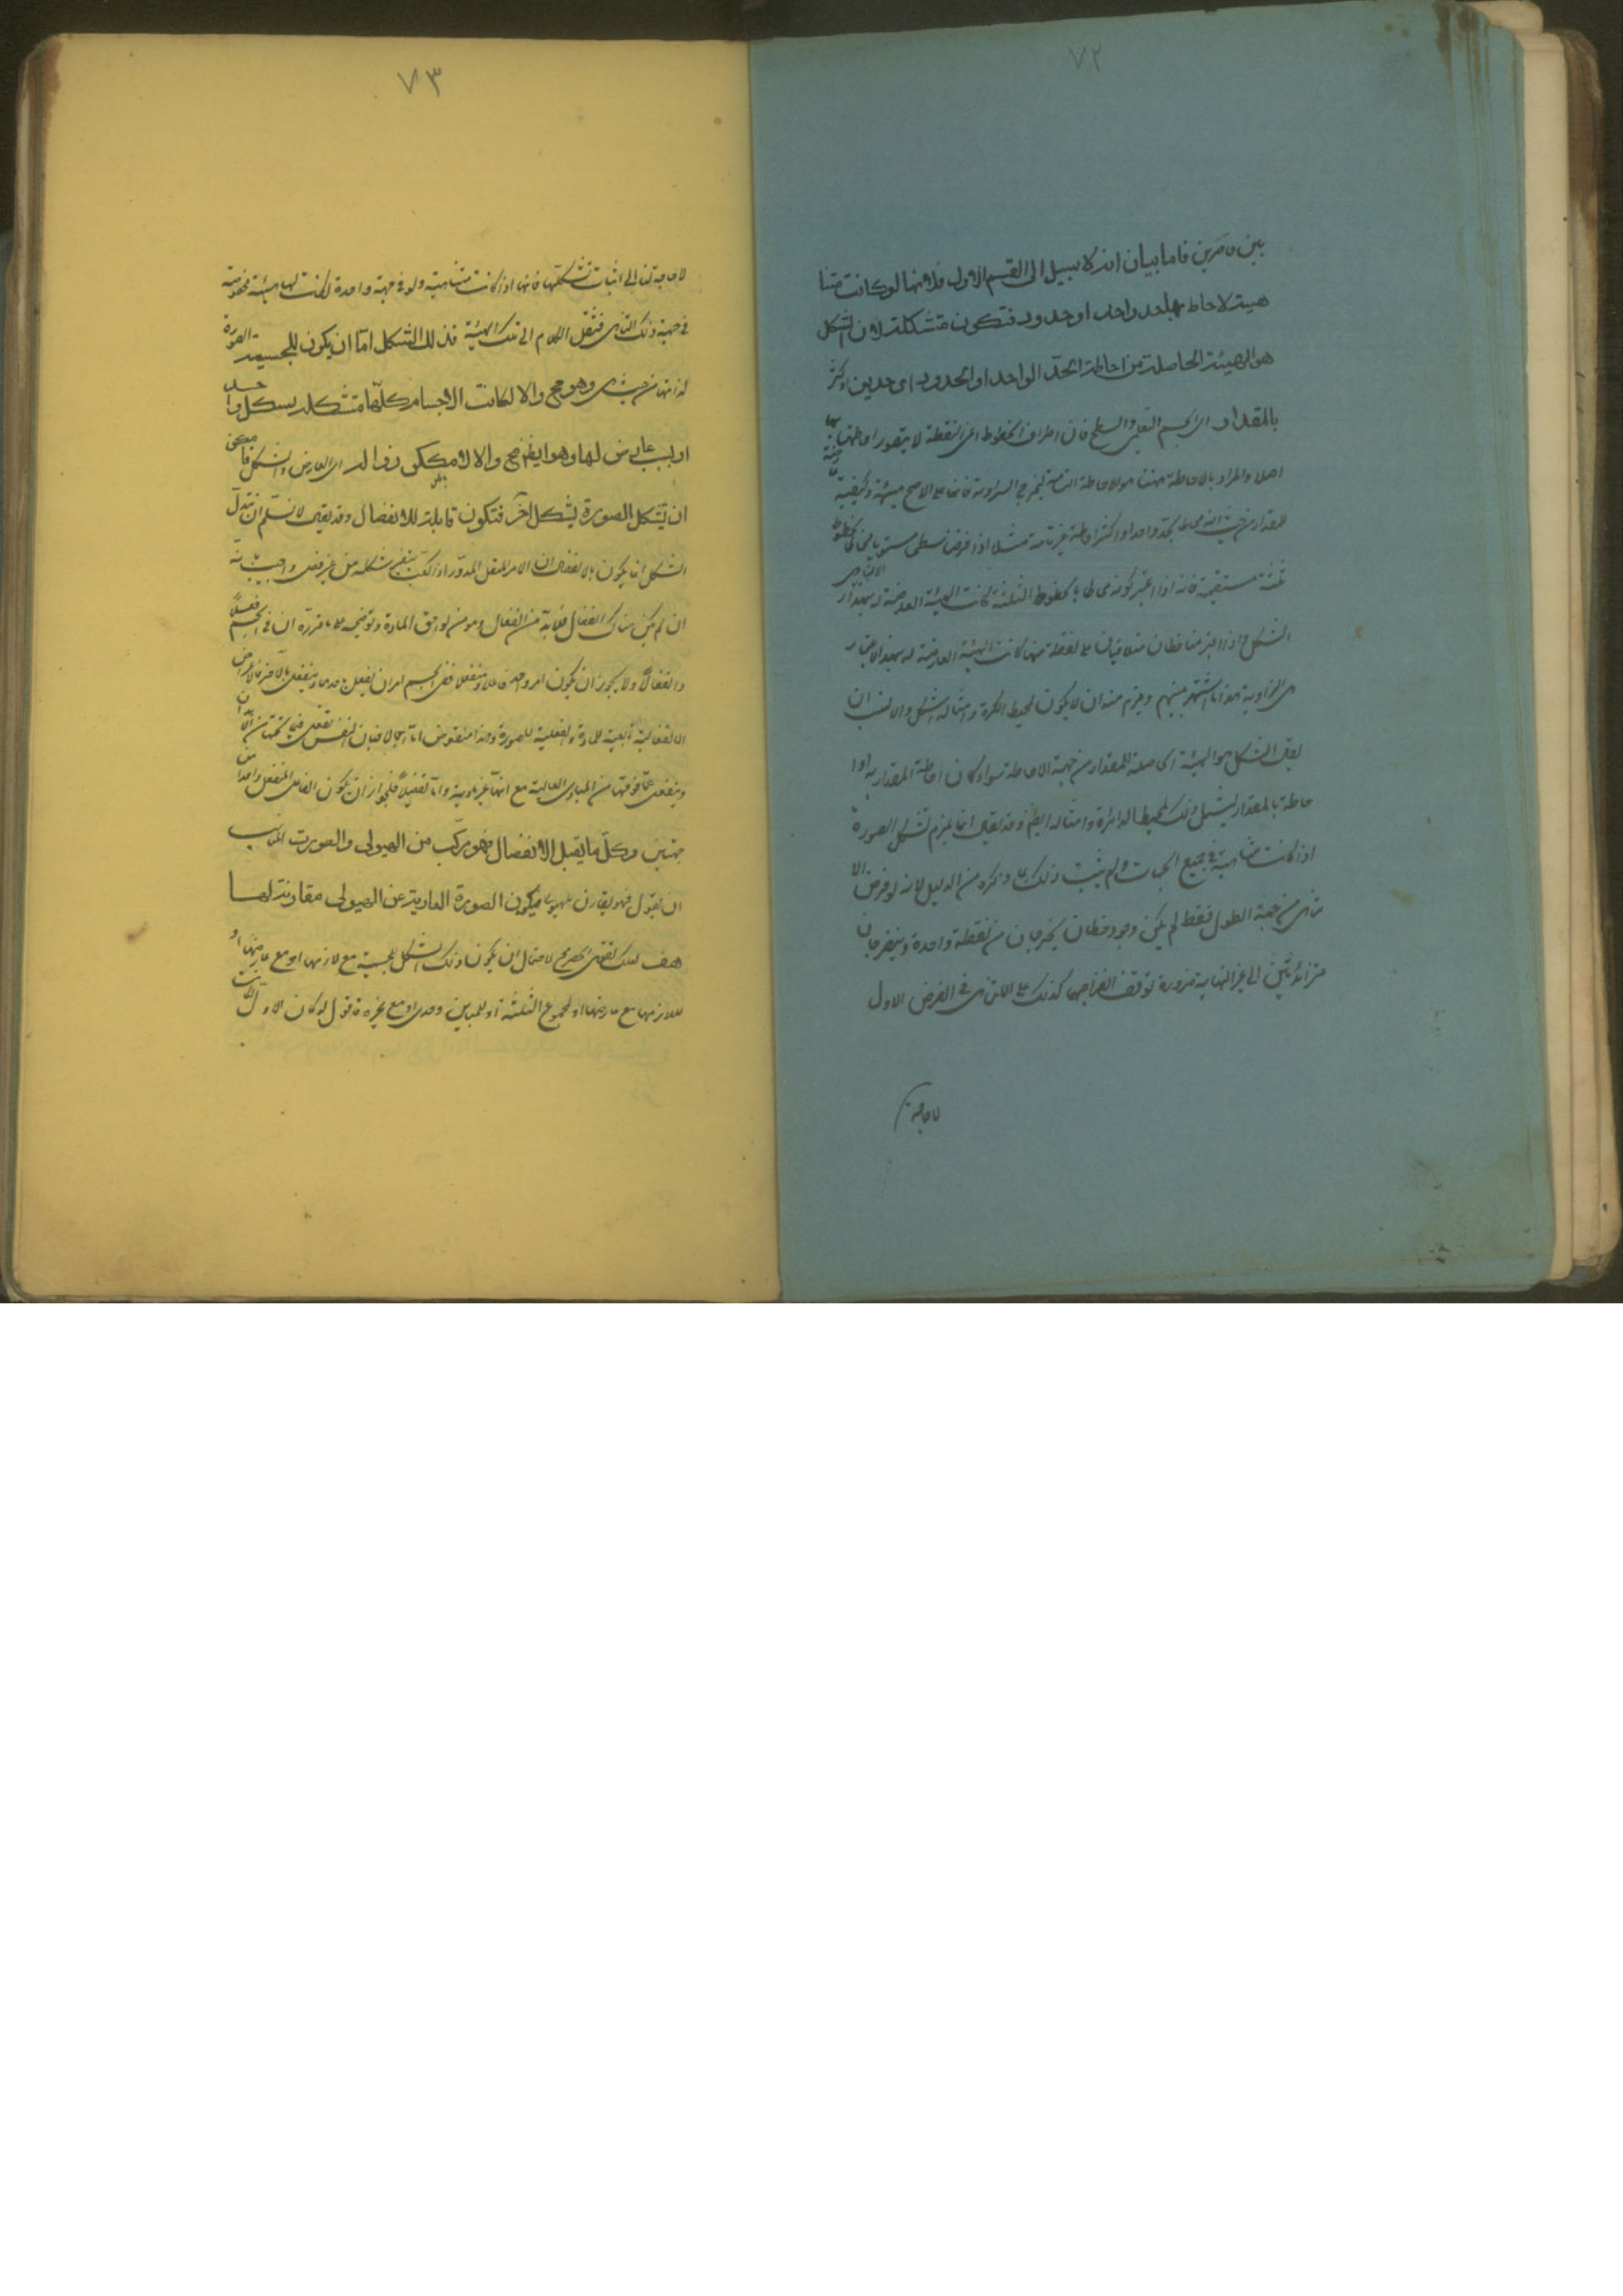 ٧٢
بين حاصرين فاما بيان انه لا سبيل الى القسم الاول فلانها لو كانت متنا
هية لاحاط بها حد واحد او حدود فتكون متشكلة لان الشكل
هو الهيئة الحاصلة من احاطة الحد الواحد او الحدود اى حدين او اكثر
بالمقدار اى الجسم التعليمى او السطح فان اطراف الخطوط اعنى النقطة لا يتصور احاطتها بها
اصلا والمراد بالاحاطة ههنا هو الاحاطة التامة ليخرج الزاوية فانها على الاصح هيئة وكيفية
للمقدار من حيث انه محاط بحد واحد او اكثر احاطة غير تامة مثلا اذا فرض سطح مستو يحيط به خطوط
ثلثة مستقيمة فانه اذا اعتبر كونه محاطا بالخطوط الثلثة كانت الهيئة العارضة له بهذا الاعتبار هى
الشكل واذا اعتبر منها خطان متلاقيان على نقطة منها كانت الهيئة العارضة له بهذا الاعتبار
هى الزاوية هذا ما اشتهر بينهم ويلزم منه ان لا يكون لمحيط الكرة وامثاله شكل والانسب ان
يقال الشكل هو الهيئة الحاصلة للمقدار من جهة الاحاطة سواء كان احاطة المقدار به او ا
حاطة بالمقدار ليشمل ذلك لمحيط الدائرة وامثاله ايضا وقد يقال انما يلزم تشكل الصورة
اذا كانت متناهية فى جميع الجهات ولم يثبت ذلك بما ذكره من الدليل لانه لو فرض الا
تناهى من جهة الطول فقط لم يكن وجود خطان يخرجان من نقطة واحدة وينفرجان
متزائدين الى غير النهاية ضرورة توقف انفراجهما كذلك على اللاتناهى فى العرض الاول
لا حاجة
٧٣
لا حاجة لنا الى اثبات تشكلها فانها اذا كانت متناهية ولو فى جهة واحدة لكانت لها هيئة مخصوصة
فى جهة ذلك التناهى فننقل الكلام الى تلك الهيئة فذلك الشكل اما ان يكون للجسمية الصورة
لذاتها من حيث هى وهو مح والا لكانت الاجسام كلها متشكلة بشكل واحد
او بسبب عارض لها وهو ايضا مح والا لامكن زواله اى العارض والشكل فامكن
ان تتشكل الصورة بشكل آخر فتكون قابلة للانفصال وقد يقال لا نسلم ان تبدل
الشكل انما يكون بالانفصال
ان لم يكن هناك انفصال فلا بد من انفعال وهو من لواحق المادة وتوضيحه على ما قرره ان فى الجسم فعلا
وانفعالا ولا يجوز ان يكون امر واحد فاعلا ومنفعلا ففى الجسم امران يفعل باحدهما وينفعل بالآخر فالاعراض
الانفعالية تابعة للمادة والفعلية للصورة وهذا منقوض اما اجمالا فبان النفس تفعل فيما تحتها من الابدان
وينفعل عما فوقها من المبادى العالية مع انها غير مادية واما تفصيلا فلجواز ان يكون الفاعل والمنفعل واحدا من
جهتين وكل ما يقبل الانفصال فهو مركب من الهيولى والصورة
ان يقول فهو يقارن للهيولى فيكون الصورة العارية عن الهيولى مقارنة لها
هف لعلك تقول الحصر مح لاحتمال ان يكون ذلك الشكل للجسمية مع لازمها او مع عارضها او
للازمها مع عارضها او لمجموع الثلثة او للمباين وحده او مع غيره فاقول لو كان الاول